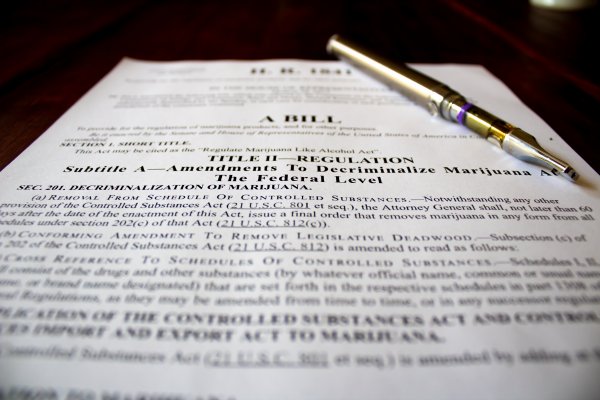 H. R. 1841
A BILL
To provide for the regulation of marijuana products, and for other purposes.
Be it enacted by the Senate and House of Representatives of the United States of America in
assembled,
SECTION 1. SHORT TITLE.
This Act may be cited as the "Regulate Marijuana Like Alcohol Act".
TITLE II—REGULATION
Subtitle A—Amendments To Decriminalize Marijuana A
The Federal Level
SEC. 201. DECRIMINALIZATION OF MARIJUANA.
(a) REMOVAL FROM SCHEDULE OF CONTROLLED SUBSTANCES.—Notwithstanding any other
provision of the Controlled Substances Act (21 U.S.C. 801 et seq.), the Attorney General shall, not later than 60
days after the date of the enactment of this Act, issue a final order that removes marijuana in any form from all
schedules under section 202(c) of that Act (21 U.S.C. 812(c)).
(b) CONFORMING AMENDMENT TO REMOVE LEGISLATIVE DEADWOOD.—Subsection (c) of
202 of the Controlled Substances Act (21 U.S.C. 812) is amended to read as follows:
CROSS REFERENCE TO SCHEDULES OF CONTROLLED SUBSTANCES.—Schedules I, II,
ll consist of the drugs and other substances (by whatever official name, common or usual
me, or brand name designated) that are set forth in the respective schedules in part 1308
of Regulations, as they may be amended from time to time, or in any successor
PLICATION OF THE CONTROLLED SUBSTANCES ACT AND CONTROL
ES IMPORT AND EXPORT ACT TO MARIJUANA.
Controlled Substances Act (21 U.S.C. 801 et seq.) is amended by adding at